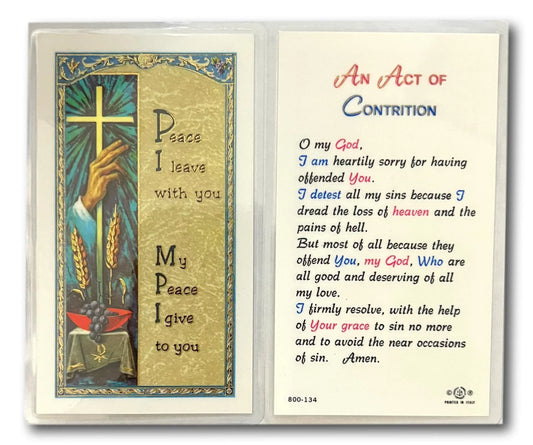 Peace
I leave
with you
My
Peace
I give
to you
An Act of
Contrition
O my God,
I am heartily sorry for having
offended You.
I detest all my sins because I
dread the loss of heaven and the
pains of hell.
But most of all because they
offend You, my God, Who are
all good and deserving of all
my love.
I firmly resolve, with the help
of Your grace to sin no more
and to avoid the near occasions
of sin. Amen.
800-134
© ®
PRINTED IN ITALY